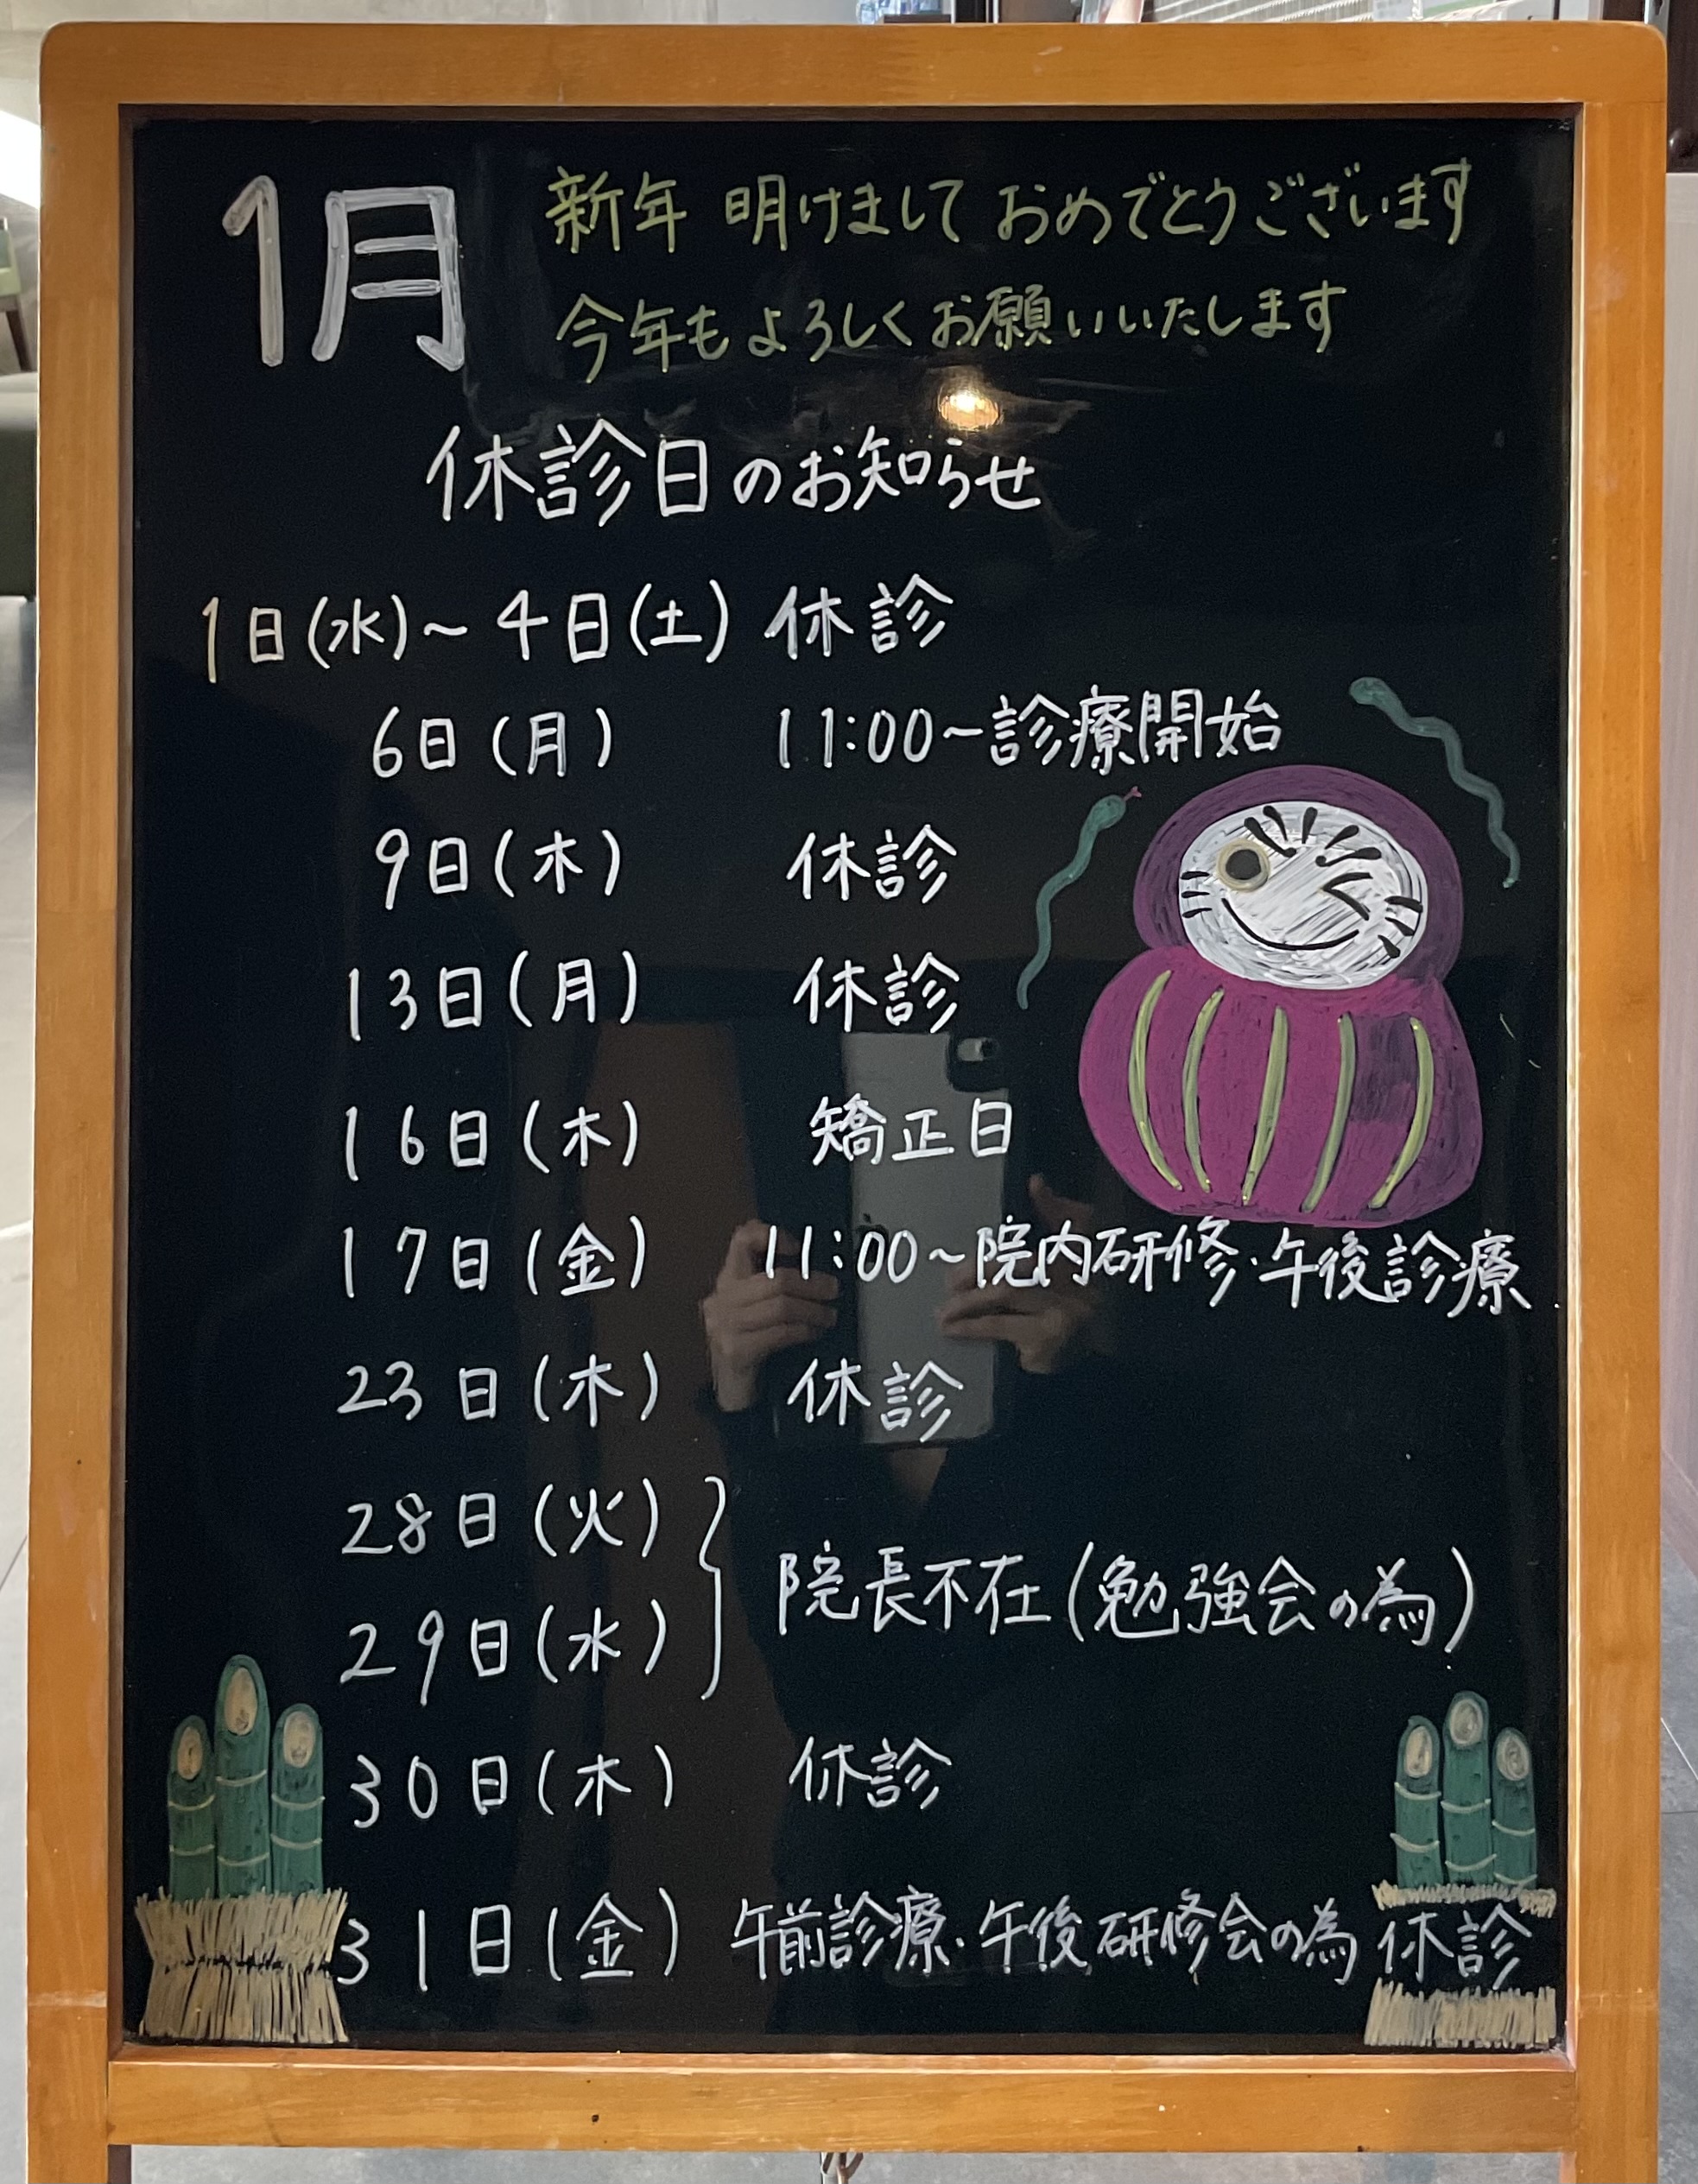 1月
新年 明けまして おめでとうございます
今年もよろしくお願いいたします
休診日のお知らせ
1日(水)~4日(土) 休診
6日(月) 11:00~診療開始
9日(木) 休診
13日(月) 休診
16日(木) 矯正日
17日(金) 11:00~院内研修・午後診療
23日(木) 休診
28日(火)
29日(水) 院長不在(勉強会の為)
30日(木) 休診
31日(金) 午前診療・午後研修会の為 休診